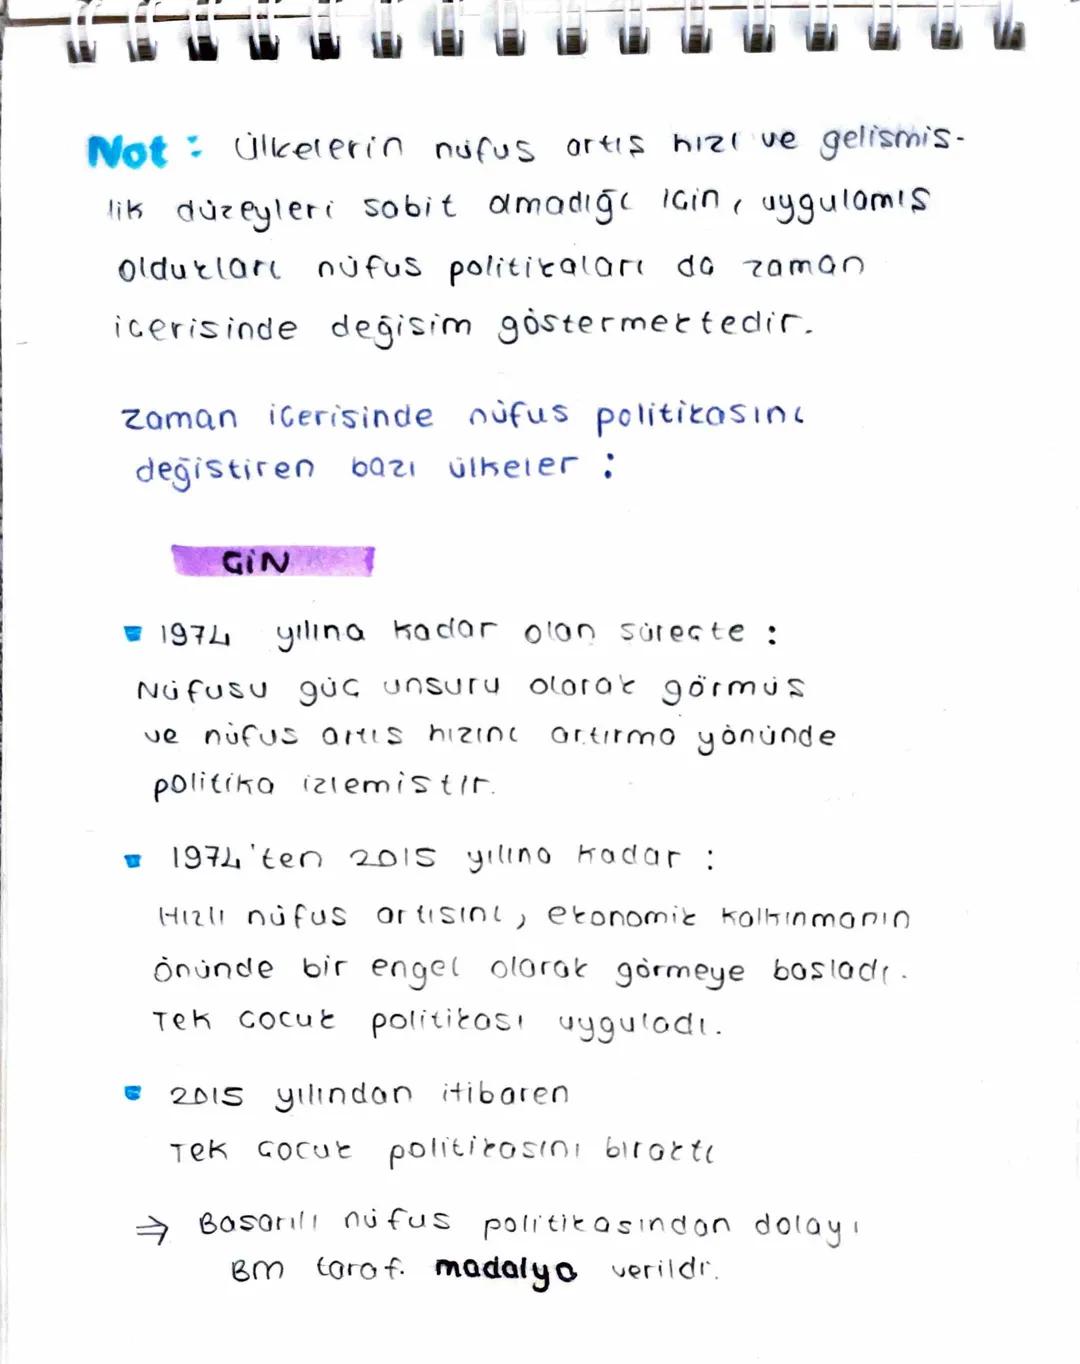 Not : Ülkelerin nüfus artış hızı ve gelişmiş-
lik düzeyleri sabit olmadığı için, uygulamış
oldukları nüfus politikaları da zaman
içerisinde değişim göstermektedir.
Zaman içerisinde nüfus politikasını
değiştiren bazı ülkeler :
ÇİN
1974 yılına kadar olan süreçte :
Nüfusu güç unsuru olarak görmüş
ve nüfus artış hızını artırma yönünde
politika izlemiştir.
1974'ten 2015 yılına kadar :
Hızlı nüfus artışını, ekonomik kalkınmanın
önünde bir engel olarak görmeye başladı.
Tek çocuk politikası uyguladı.
2015 yılından itibaren
Tek çocuk politikasını bıraktı
⇒ Başarılı nüfus politikasından dolayı
BM taraf. madalya verildi.